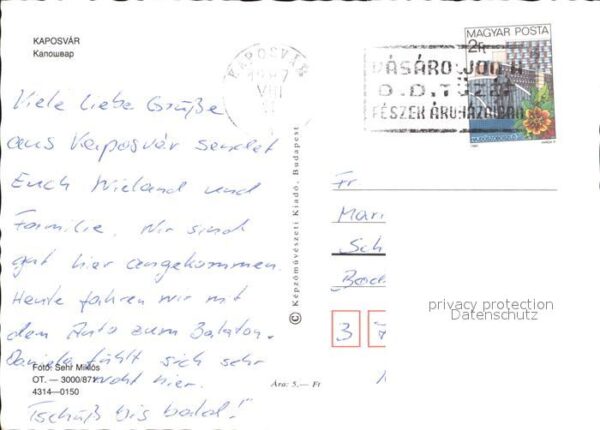 KAPOSVÁR
Капошвар
Viele liebe Grüße
aus Kaposvár sendet
Euch Wieland und
Familie. Wir sind
gut hier angekommen.
Heute fahren wir mit
dem Auto zum Balaton.
Daniela fühlt sich sehr
wohl hier.
Tschüß bis bald!"
Fotó: Sehr Miklós
OT. — 3000/871
4314—0150
Ára: 5.— Ft
© Képzőművészeti Kiadó, Budapest
KAPOSVÁR
VIII
VÁSÁROLJON A
D.D. TÜZÉP
FÉSZEK ÁRUHÁZAIBAN
MAGYAR POSTA
2Ft
HAJDÚSZOBOSZLÓ
Fr
Mari
Sch
Bad
privacy protection
Datenschutz
3 7